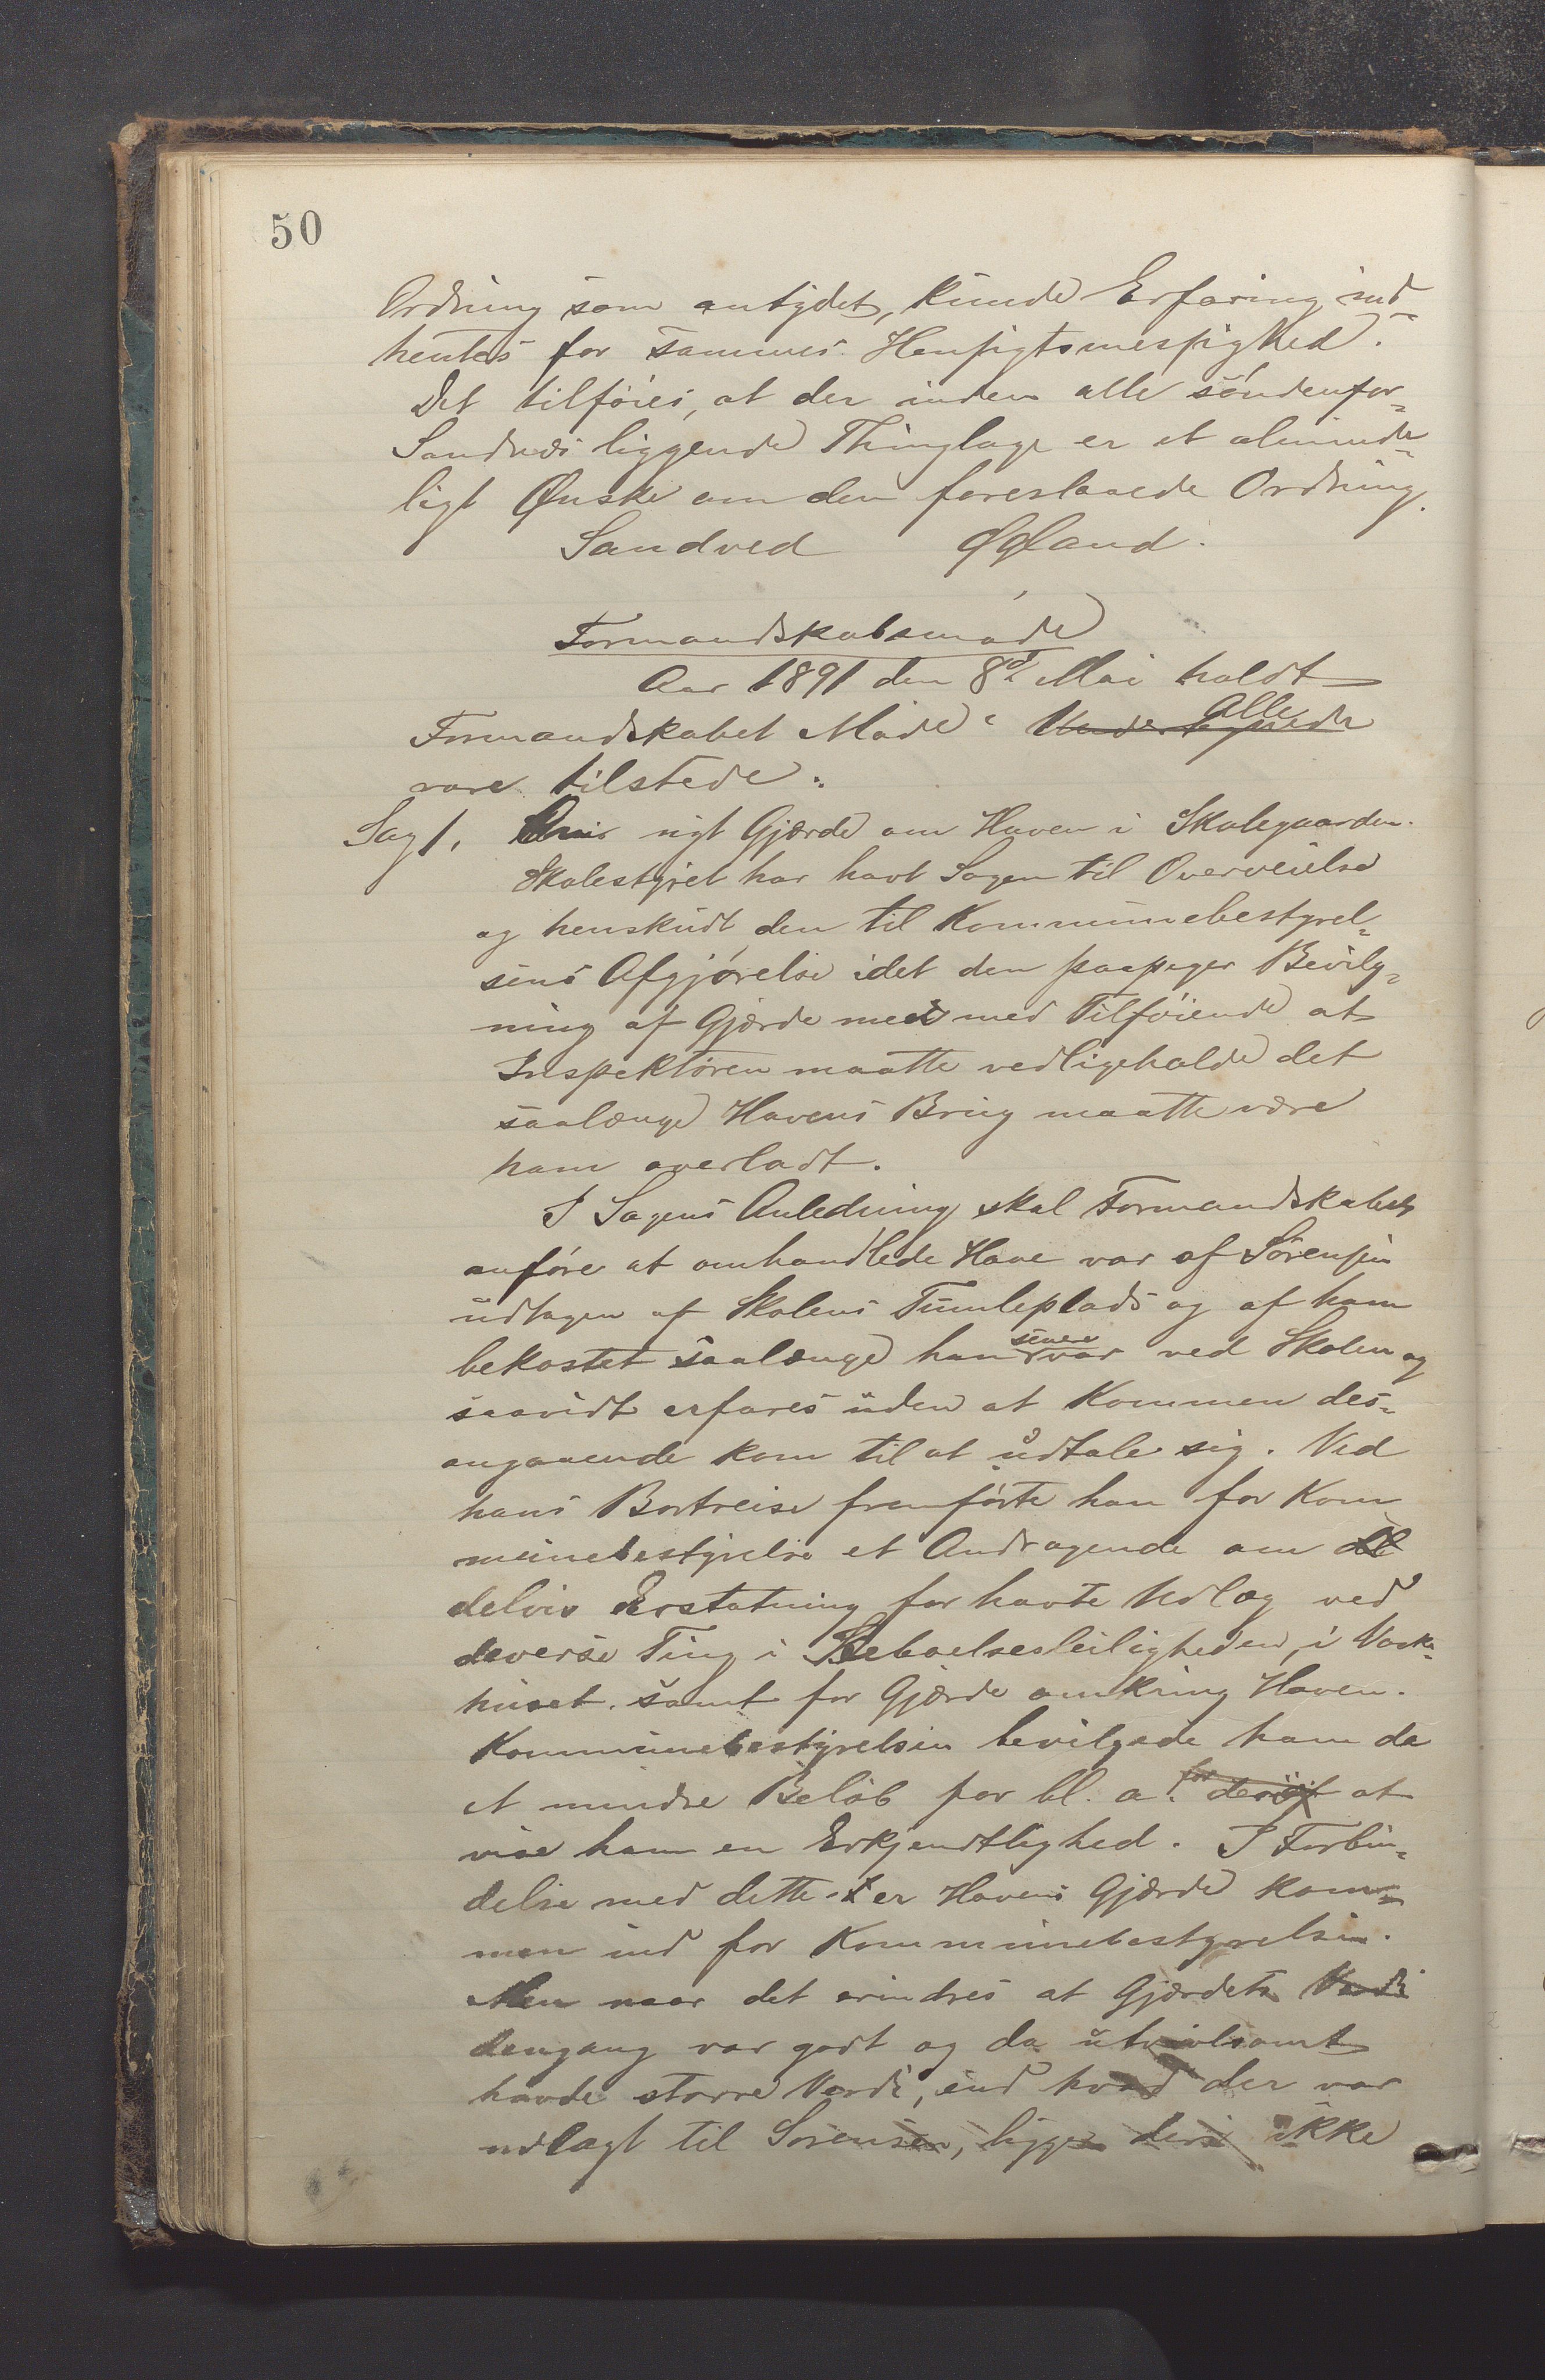 50
Ordning som antydet, kunde Erfaring ind-
hentes for sammes Hensigtsmessighed.
Det tilföies, at der inden alle söndenfor-
Sandnæs liggende Thinglage er et alminde-
ligt Ønske om den foreslaaede Ordning.
Sandved Øgland.
Formandskabsmöde
Aar 1891 den 8de Mai holdt
Formandskabet Möde. Undertegnede Alle
vare tilstede.
Sag 1, nyt Gjærde om Haven i Skolegaarden.
Skolestyret har havt Sagen til Overveielse
og henskudt den til Kommunebestyrel-
sens Afgjörelse idet den Bevilg-
ning af Gjærde med med Tilföiende at
Inspektören maatte vedligeholde det
saalænge Havens Brug maatte være
ham overladt.
I Sagens Anledning skal Formandskabet
anföre at omhandlede Have var af Sörensen
udtagen af Skolens Tumleplads og af ham
bekostet saalænge han senere var ved Skolen og
saavidt erfares uden at Kommen des-
angaaende kom til at udtale sig. Ved
hans Bortreise fremförte han for Kom
munebestyrelse et Andragende om
delvis Erstatning for havte Udlæg ved
deverse Ting i Beboelsesleiligheden, i Vask-
huset samt for Gjærde omkring Haven.
Kommunebestyrelsen bevilgede ham da
et mindre Belöb for bl. a. for at
vise ham en Erkjendtlighed. I Forbin-
delse med dette er Havens Gjærde kom-
men ind for Kommunebestyrelsen.
Men naar det erindres at Gjærdets Værdi
dengang var godt og da utvivlsomt
havde större Værdi, end hvad der var
udlagt til Sörensen, ligger deri ikke